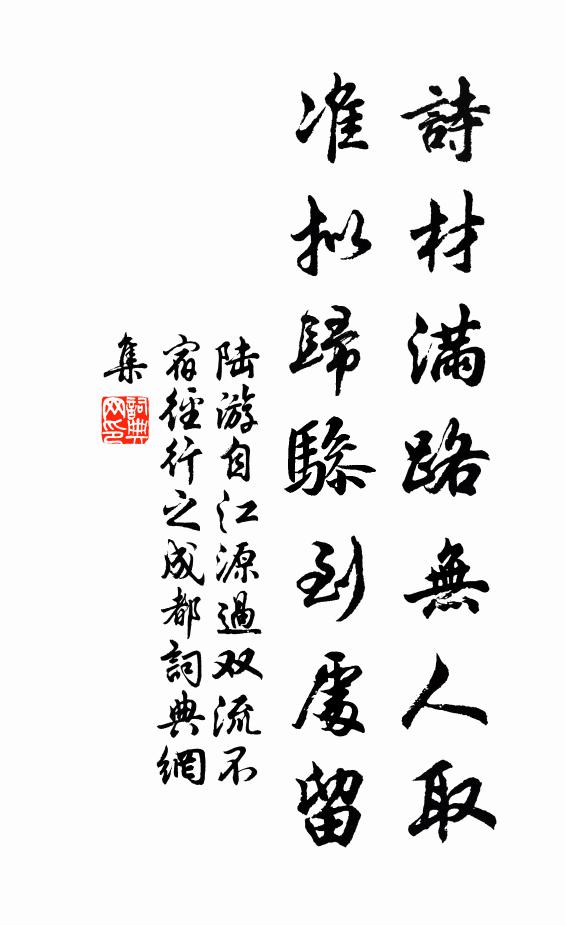 詩材滿路無人取
准擬歸驂到處留
陆游自江源過双流不
宿徑行之成都詞典網
集
詞典网印